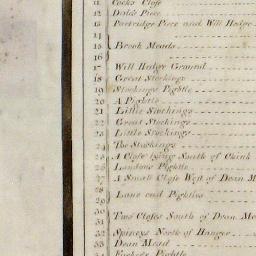 11 Cocks Close
12 Dale's Piece
13 Partridge Piece and Will Hedge
14
15 Brook Meads
16
17 Will Hedge Ground
18 Great Stockings
19 Stockings Pightle
20 A Pightle
21 Little Stockings
22 Great Stockings
23 Little Stockings
24 The Stockings
25 A Close lying South of Chink
26 Pightle
27 A Small Close West of Dean M
28
29 Lane and Pightles
30
31 Two Closes South of Dean Me
32 Spineys North of Hanger
33 Dean Mead
Pightle